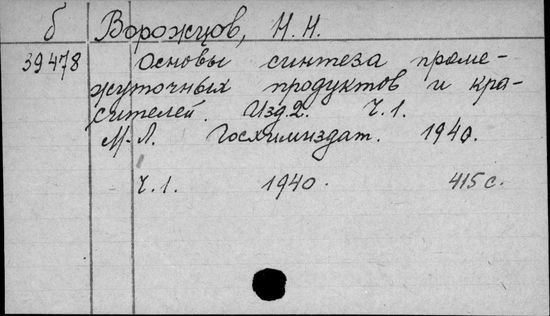 б Ворожцов, Н. Н.
39478 Основы синтеза проме-
жуточных продуктов и кра-
сителей. Изд. 2. Ч. 1.
М.-Л. Госхимиздат. 1940.
Ч. 1. 1940. 415 с.